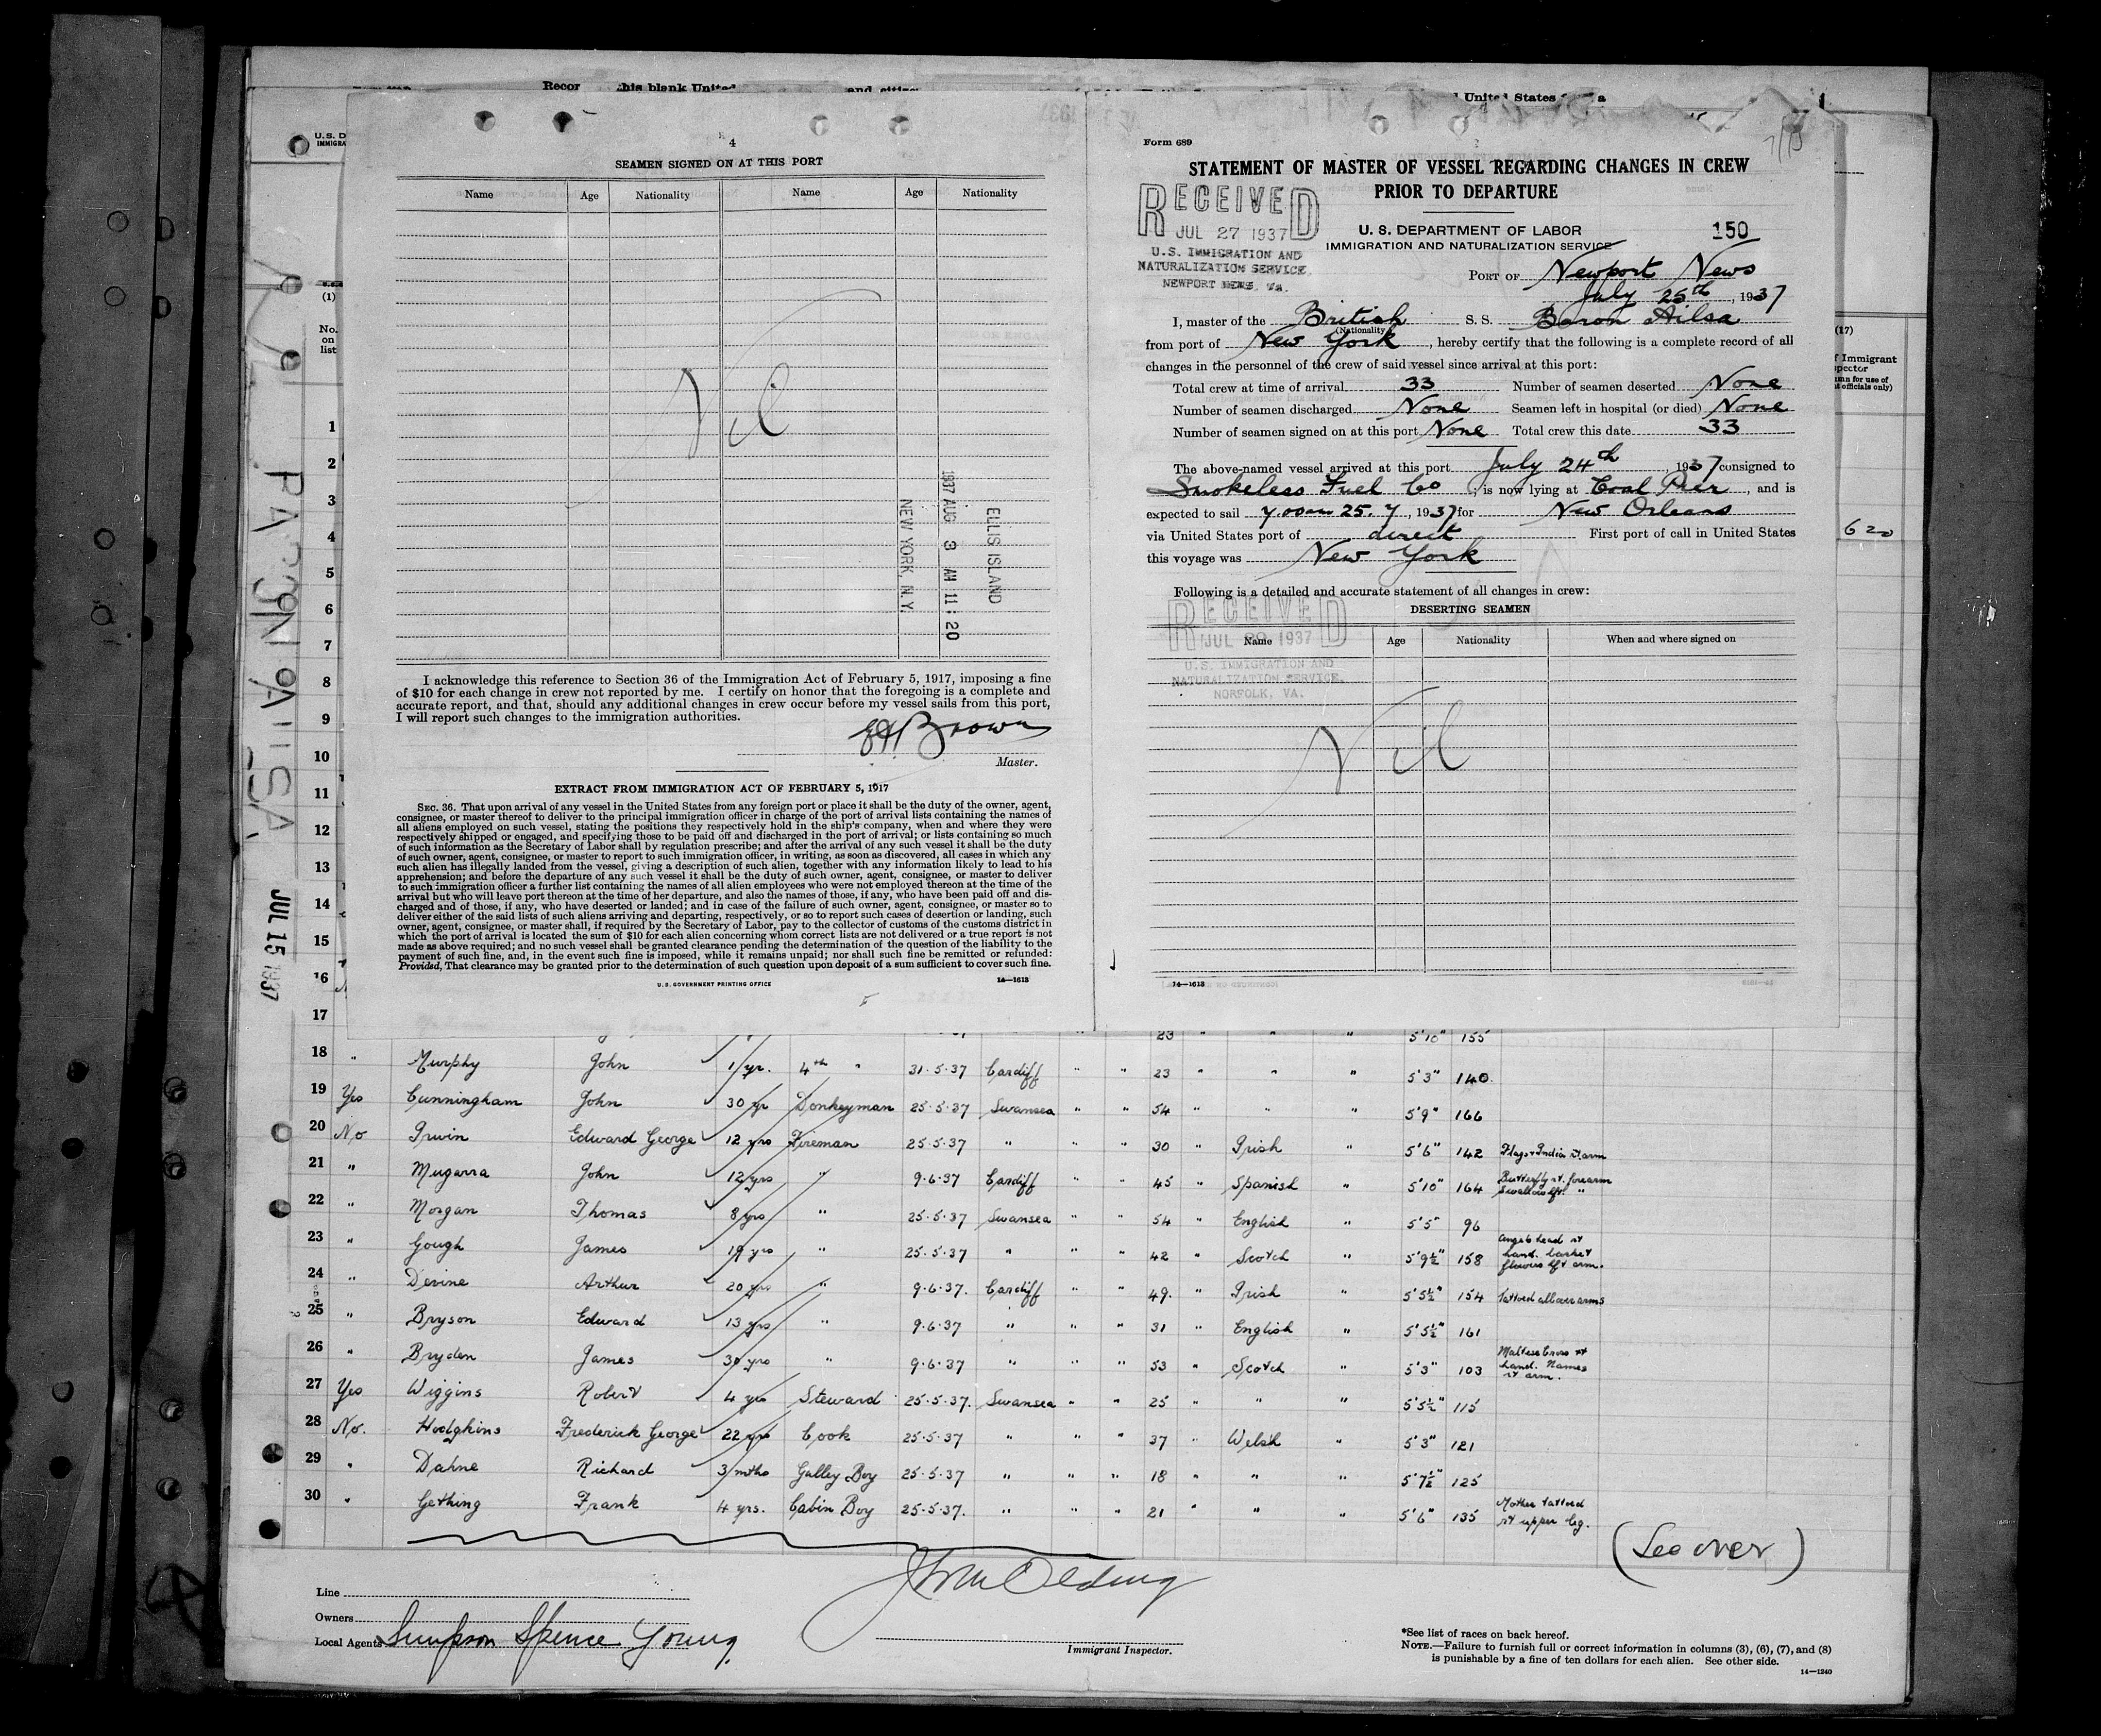 Recor
his blank United
and citizen
United States
U.S. D
IMMIGRA
(1)
No.
on
list
4
SEAMEN SIGNED ON AT THIS PORT
Name Age Nationality Name Age Nationality
Nil
ELLIS ISLAND
1937 AUG 3 AM 11:20
NEW YORK, N.Y.
I acknowledge this reference to Section 36 of the Immigration Act of February 5, 1917, imposing a fine
of $10 for each change in crew not reported by me. I certify on honor that the foregoing is a complete and
accurate report, and that, should any additional changes in crew occur before my vessel sails from this port,
I will report such changes to the immigration authorities.
Brown
Master.
EXTRACT FROM IMMIGRATION ACT OF FEBRUARY 5, 1917
SEC. 36. That upon arrival of any vessel in the United States from any foreign port or place it shall be the duty of the owner, agent,
consignee, or master thereof to deliver to the principal immigration officer in charge of the port of arrival lists containing the names of
all aliens employed on such vessel, stating the positions they respectively hold in the ship's company, when and where they were
respectively shipped or engaged, and specifying those to be paid off and discharged in the port of arrival; or lists containing so much
of such information as the Secretary of Labor shall by regulation prescribe; and after the arrival of any such vessel it shall be the duty
of such owner, agent, consignee, or master to report to such immigration officer, in writing, as soon as discovered, all cases in which any
such alien has illegally landed from the vessel, giving a description of such alien, together with any information likely to lead to his
apprehension; and before the departure of any such vessel it shall be the duty of such owner, agent, consignee, or master to deliver
to such immigration officer a further list containing the names of all alien employees who were not employed thereon at the time of the
arrival but who will leave port thereon at the time of her departure, and also the names of those, if any, who have been paid off and dis-
charged and of those, if any, who have deserted or landed; and in case of the failure of such owner, agent, consignee, or master so to
deliver either of the said lists of such aliens arriving and departing, respectively, or so to report such cases of desertion or landing, such
owner, agent, consignee, or master shall, if required by the Secretary of Labor, pay to the collector of customs of the customs district in
which the port of arrival is located the sum of $10 for each alien concerning whom correct lists are not delivered or a true report is not
made as above required; and no such vessel shall be granted clearance pending the determination of the question of the liability to the
payment of such fine, and, in the event such fine is imposed, while it remains unpaid; nor shall such fine be remitted or refunded:
Provided, That clearance may be granted prior to the determination of such question upon deposit of a sum sufficient to cover such fine.
U. S. GOVERNMENT PRINTING OFFICE 14—1613
Form 689
7/15
STATEMENT OF MASTER OF VESSEL REGARDING CHANGES IN CREW
PRIOR TO DEPARTURE
RECEIVED
JUL 27 1937
U.S. IMMIGRATION AND
NATURALIZATION SERVICE
NEWPORT NEWS, Va.
U. S. DEPARTMENT OF LABOR
IMMIGRATION AND NATURALIZATION SERVICE
150
PORT OF Newport News
July 25th, 1937
I, master of the British S. S. Baron Ailsa
(Nationality)
from port of New York, hereby certify that the following is a complete record of all
changes in the personnel of the crew of said vessel since arrival at this port:
Total crew at time of arrival 33 Number of seamen deserted None
Number of seamen discharged None Seamen left in hospital (or died) None
Number of seamen signed on at this port None Total crew this date 33
The above-named vessel arrived at this port July 24th, 1937 consigned to
Smokeless Fuel Co, is now lying at Coal Pier, and is
expected to sail 7.00am 25.7, 1937 for New Orleans
via United States port of direct First port of call in United States
this voyage was New York
Following is a detailed and accurate statement of all changes in crew:
DESERTING SEAMEN
RECEIVED
JUL 29 1937
U.S. IMMIGRATION AND
NATURALIZATION SERVICE,
NORFOLK, VA.
Name Age Nationality When and where signed on
Nil
14—1613
(17)
f Immigrant
spector
mn for use of
t officials only)
620
BARON AILSA
JUL 15 1937
1
2
3
4
5
6
7
8
9
10
11
12
13
14
15
16
17 23 " " " 5'10" 155
18 " Murphy John 1 yr. 4th " 31.5.37 Cardiff " " 23 " " " 5'3" 140
19 Yes Cunningham John 30 yr Donkeyman 25.5.37 Swansea " " 54 " " " 5'9" 166
20 No Irwin Edward George 12 yrs Fireman 25.5.37 " " " 30 " Irish " 5'6" 142 Flags & India rt arm
21 " Mugarra John 12 yrs " 9.6.37 Cardiff " " 45 " Spanish " 5'10" 164 Butterfly rt. forearm Swallow lft. "
22 " Morgan Thomas 8 yrs " 25.5.37 Swansea " " 54 " English " 5'5" 96
23 " Gough James 19 yrs " 25.5.37 " " " 42 " Scotch " 5'9½" 158 Angels head rt hand. basket flowers lft arm.
24 " Devine Arthur 20 yrs " 9.6.37. Cardiff " " 49. " Irish " 5'5½" 154 Tattoed all over arms
25 " Bryson Edward 13 yrs " 9.6.37 " " " 31 " English " 5'5½" 161
26 " Bryden James 30 yrs " 9.6.37 " " " 53 " Scotch " 5'3" 103 Maltese Cross rt hand. Names rt arm.
27 Yes Wiggins Robert 4 yrs Steward 25.5.37. Swansea " " 25 " " " 5'5½" 115
28 No. Hodgkins Frederick George 22 yrs Cook 25.5.37 " " " 37 " Welsh " 5'3" 121
29 " Dahne Richard 3 mths Galley Boy 25.5.37 " " " 18 " " " 5'7½" 125
30 " Gething Frank 4 yrs. Cabin Boy 25.5.37. " " " 21 " " " 5'6" 135 Mother tattoed rt upper leg.
(See over)
Line
Owners
Local Agents Simpson Spence Young
Immigrant Inspector.
*See list of races on back hereof.
NOTE.—Failure to furnish full or correct information in columns (3), (6), (7), and (8)
is punishable by a fine of ten dollars for each alien. See other side.
14—1240